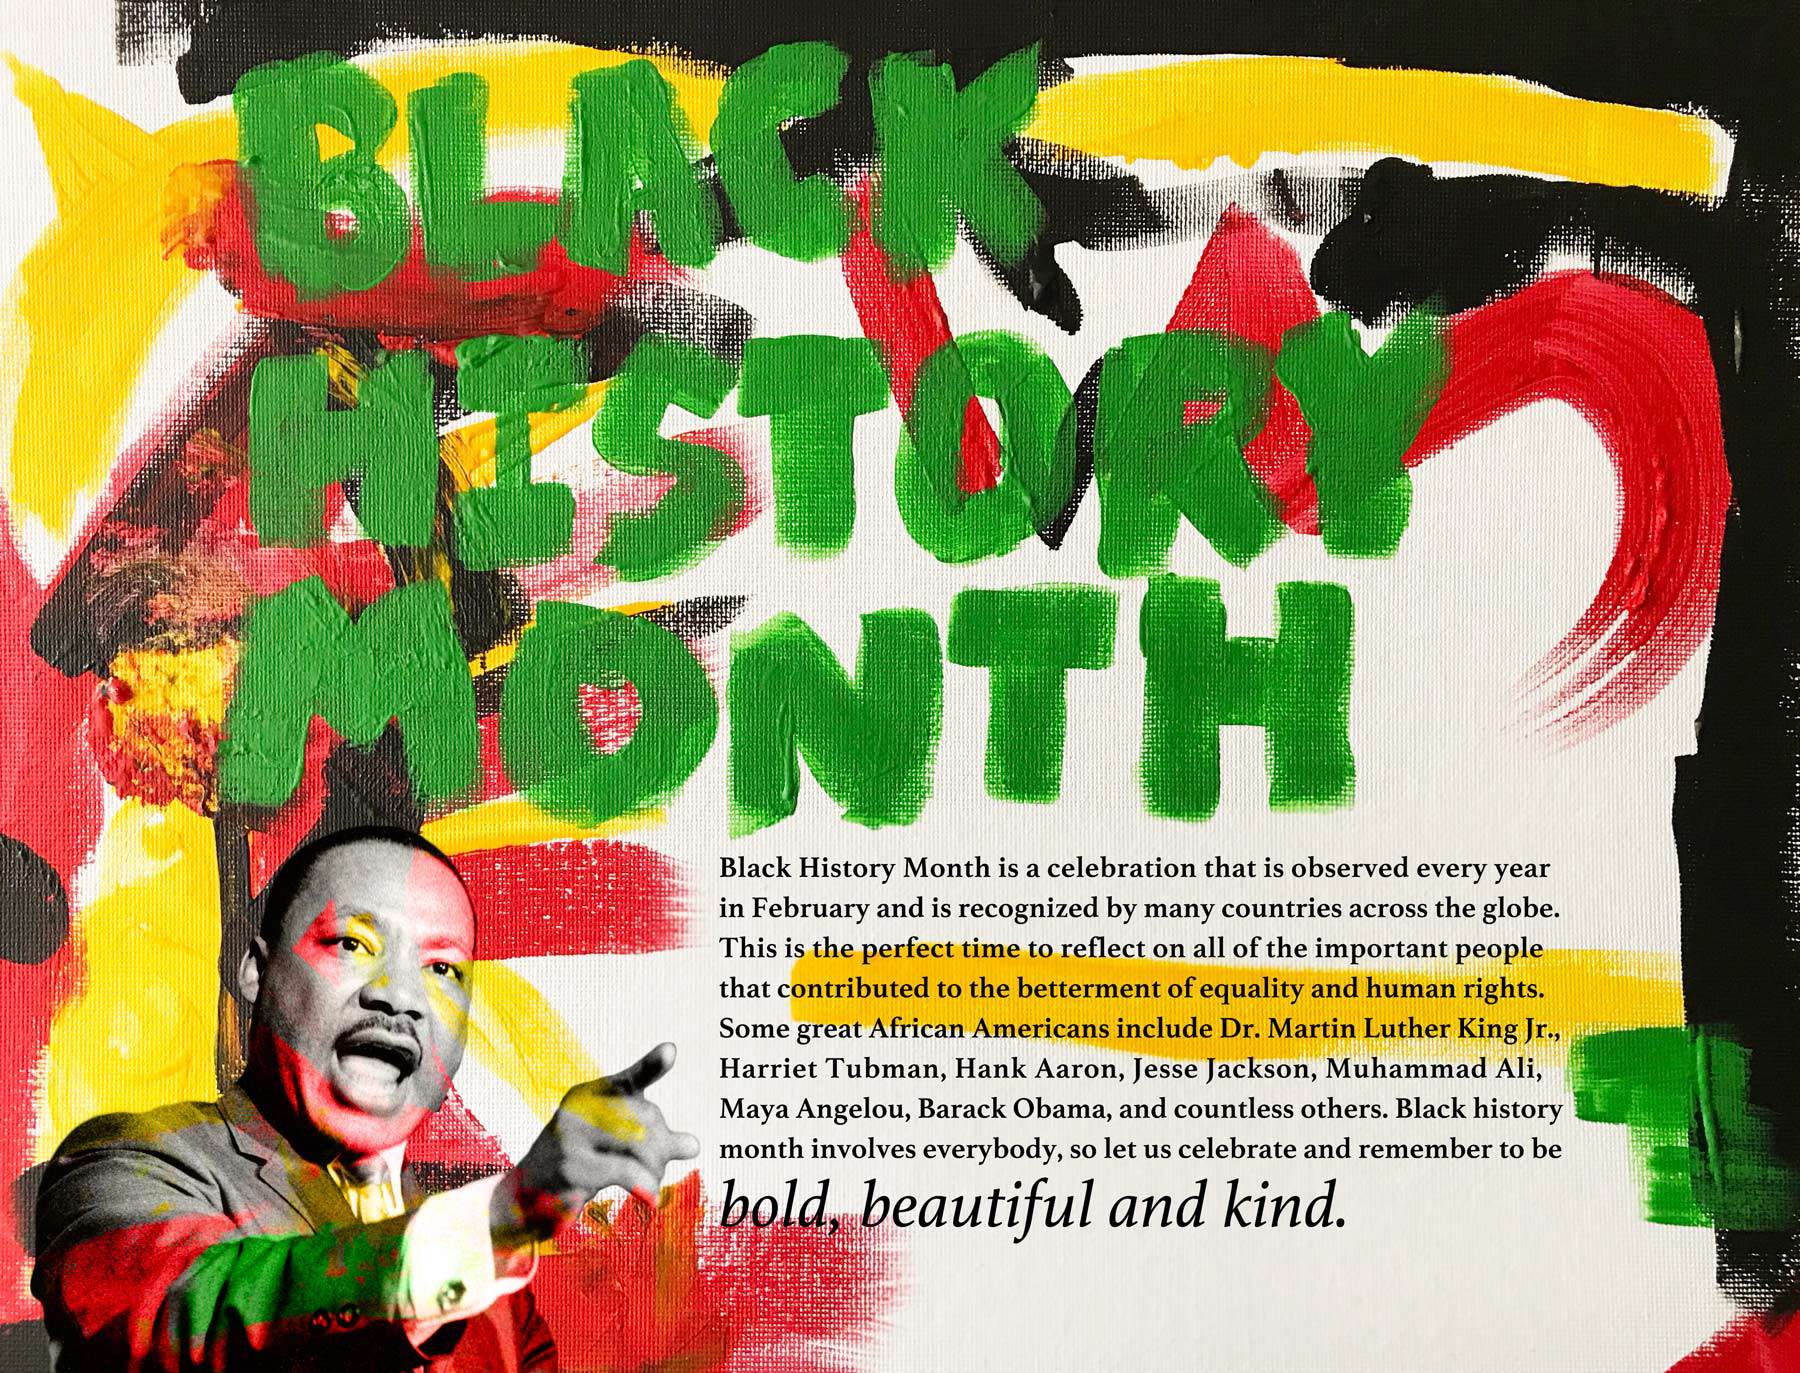 BLACK
HISTORY
MONTH
Black History Month is a celebration that is observed every year
in February and is recognized by many countries across the globe.
This is the perfect time to reflect on all of the important people
that contributed to the betterment of equality and human rights.
Some great African Americans include Dr. Martin Luther King Jr.,
Harriet Tubman, Hank Aaron, Jesse Jackson, Muhammad Ali,
Maya Angelou, Barack Obama, and countless others. Black history
month involves everybody, so let us celebrate and remember to be
bold, beautiful and kind.